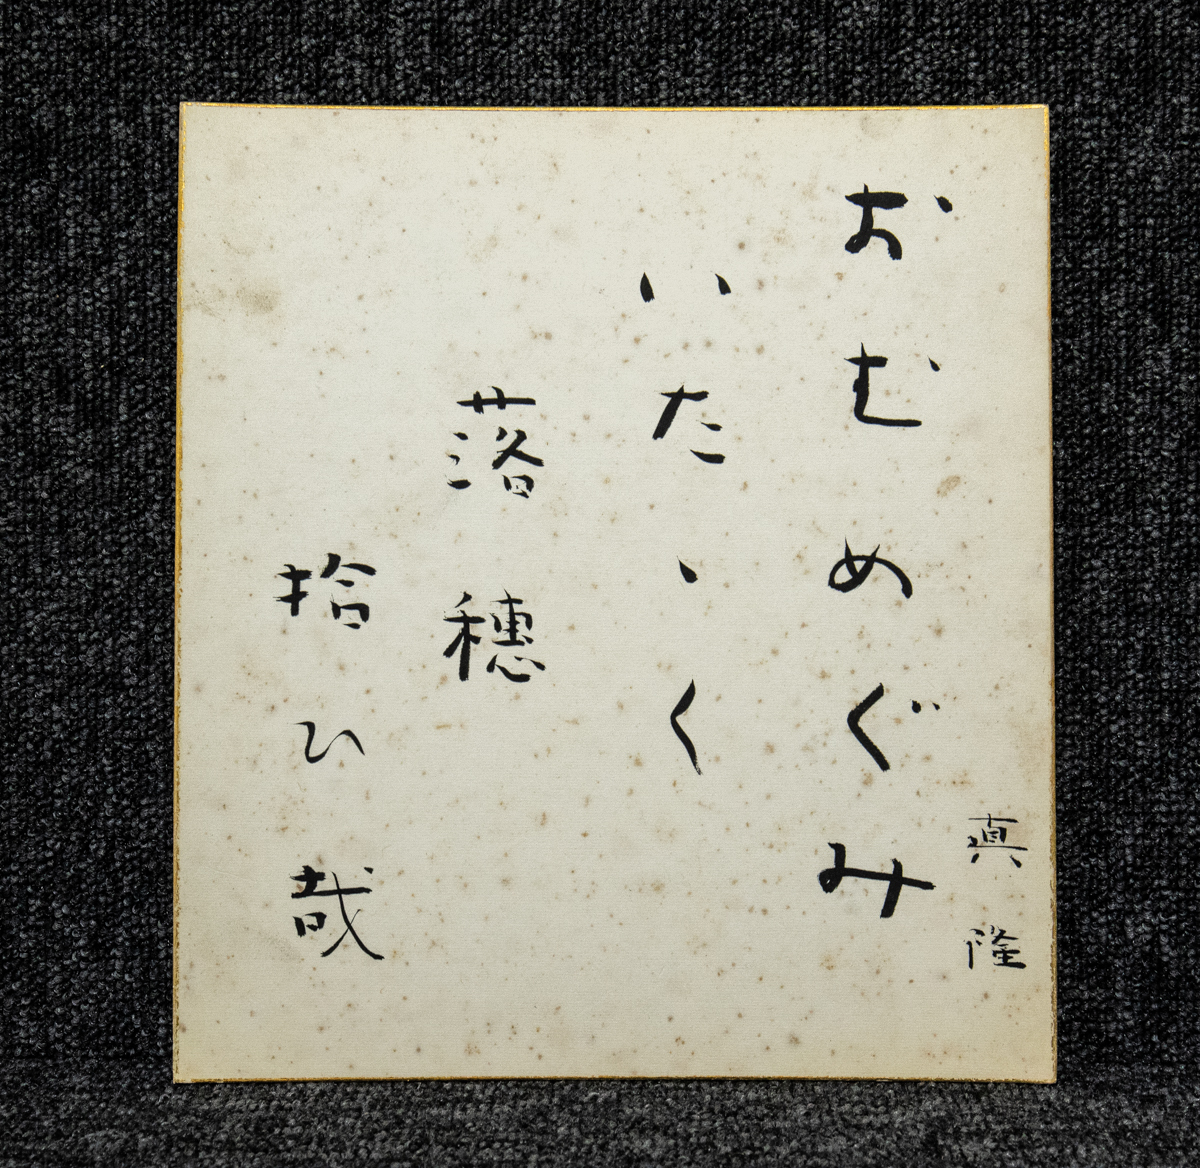 おむめぐみ
いたゝく
落穂
拾ひ哉
真隆